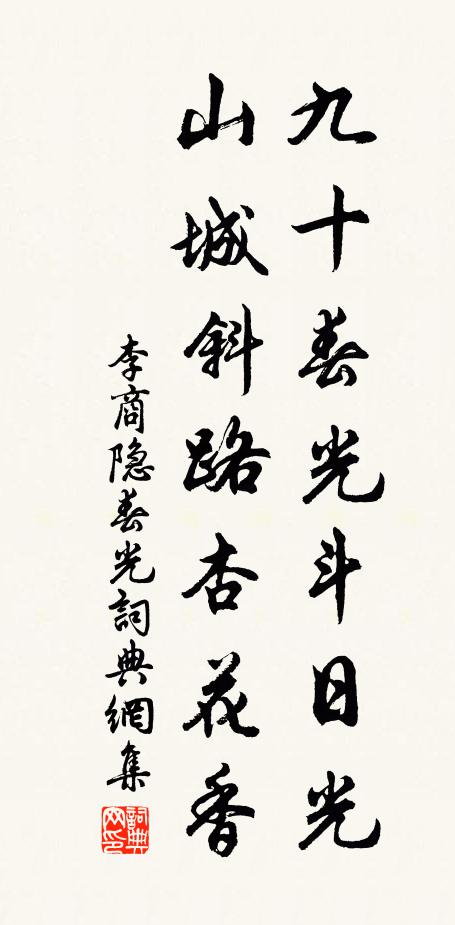 九十春光斗日光
山城斜路杏花香
李商隐春光詞典網集
詞典网印